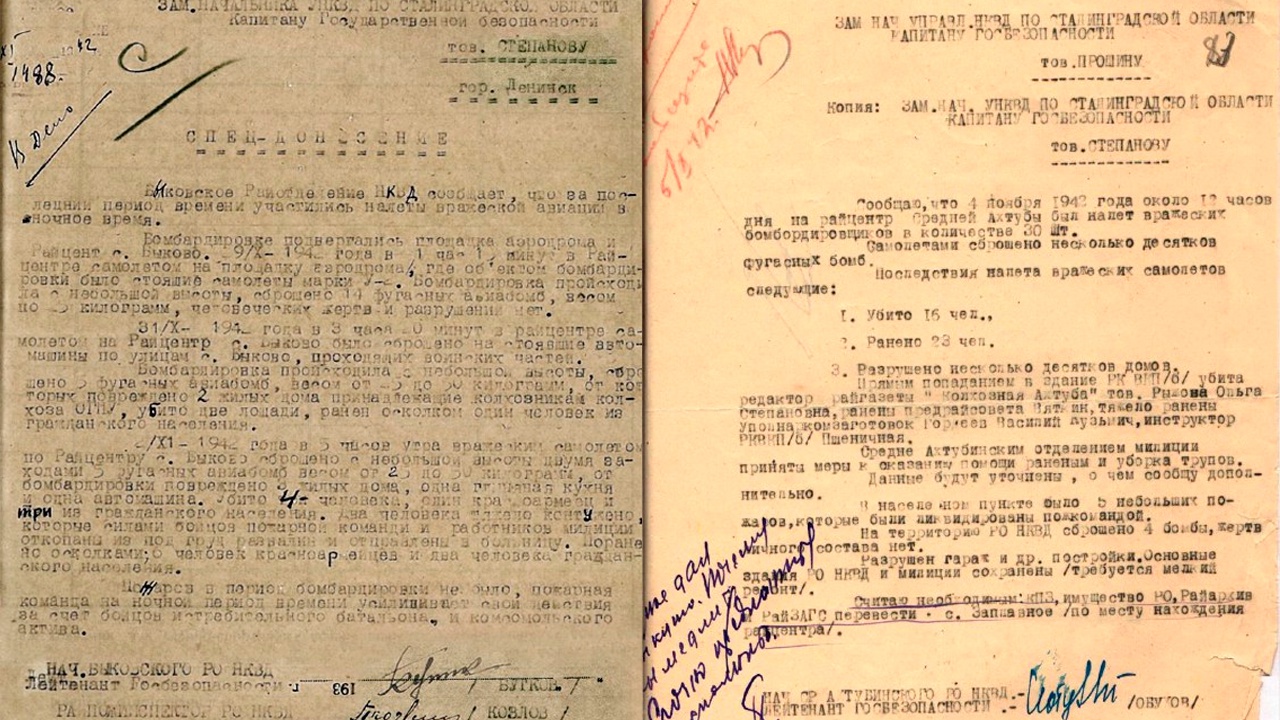 ЗАМ.НАЧАЛЬНИКА УНКВД ПО СТАЛИНГРАДСКОЙ ОБЛАСТИ
Капитану Государственной безопасности
тов. СТЕПАНОВУ
гор. Ленинск
1488.
В дело
СПЕЦ-ДОНЕСЕНИЕ
Быковское Райотделение НКВД сообщает, что за пос-
ледний период времени участились налеты вражеской авиации в
ночное время.
Бомбардировке подвергались площадка аэродрома и
Райцент с. Быково. 9/X- 194 года в 1 час 1 минут в Рай-
центре самолетом на площадку аэродрома, где об'ектом бомбарди-
ровки было стоявшие самолеты марки Бомбардировка происходи
ла с небольшой высоты, сброшено фугасных авиабомб, весом
по килограмм, человеческих жертв и разрушений нет.
31/X- 194 года в 3 часа 0 минут в райцентре са-
молетом на Райцентр с. Быково было сброшено на стоявшие авто-
машины по улицам с. Быково, проходящих воинских частей.
Бомбардировка происходила с небольшой высоты, сбро
шено 5 фугасных авиабомб, весом от до 50 килограмм, от ко
торых повреждено 2 жилых дома принадлежащие колхозникам кол-
хоза ОГПУ, убито две лошади, ранен осколком один человек из
гражданского населения.
/XI- 1942 года в 5 часов утра вражеским самолетом
по Райцентру с. Быково сброшено с небольшой высоты двумя за-
ходами 5 фугасных авиабомб весом от 2 до 50 килограмм, от
бомбардировки повреждено жилых дома, одна кухня
и одна автомашина. Убито 4 человека, один красноармеец и
три из гражданского населения. Два человека
которые силами бойцов пожарной команды и работников милиции
откопаны из под груд развалин и отправлены в больницу. Поране
но осколками 6 человек красноармейцев и два человека граждан-
ского населения.
Пожаров в период бомбардировки не было, пожарная
команда на ночной период времени усиливает свои действия
за счет бойцов истребительного батальона, и комсомольского
актива.
НАЧ.БЫКОВСКОГО РО НКВД
Лейтенант Госбезопасности 193 г. /БУГКОВ./
РО НКВД КОЗЛОВ/
ЗАМ НАЧ УПРАВЛ.НКВД ПО СТАЛИНГРАДСКОЙ ОБЛАСТИ
КАПИТАНУ ГОСБЕЗОПАСНОСТИ
тов.ПРОШИНУ
Копия: ЗАМ.НАЧ. УНКВД ПО СТАЛИНГРАДСКОЙ ОБЛАСТИ
КАПИТАНУ ГОСБЕЗОПАСНОСТИ
тов.СТЕПАНОВУ
Сообщаю,что 4 ноября 1942 года около 12 часов
дня на райцентр Средней Ахтубы был налет вражеских
бомбордировщиков в количестве 30 шт.
Самолетами сброшено несколько десятков
фугасных бомб.
Последствия налета вражеских самолетов
следующие:
1. Убито 16 чел.,
2. Ранено 23 чел.
3. Разрушено несколько десятков домов.
Прямым попаданием в здание РК ВКП/б/ убита
редактор райгазеты "Колхозная Ахтуба" тов. Рылова Ольга
Степановна,ранены предрайсовета Вяткин,тяжело ранены
Уполнаркомзаготовок Гордеев Василий Кузьмич,инструктор
РКВКП/б/ Пшеничная.
Средне Ахтубинским отделением милиции
приняты меры к оказанию помощи раненым и уборка трупов.
Данные будут уточнены , о чем сообщу допол-
нительно.
В населенном пункте было 5 небольших по-
жаров,которые были ликвидированы пожкомандой.
На территорию РО НКВД сброшено 4 бомбы,жертв
личного состава нет.
Разрушен гараж и др. постройки.Основные
здания РО НКВД и милиции сохранены /требуется мелкий
ремонт/.
Считаю необходимым:КПЗ,имущество РО,Райархив
и РайЗАГС перевести с. Заплавное /по месту нахождения
райцентра/.
НАЧ СР АХТУБИНСКОГО РО НКВД.-
ЛЕЙТЕНАНТ ГОСБЕЗОПАСНОСТИ .- /ОБУХОВ/